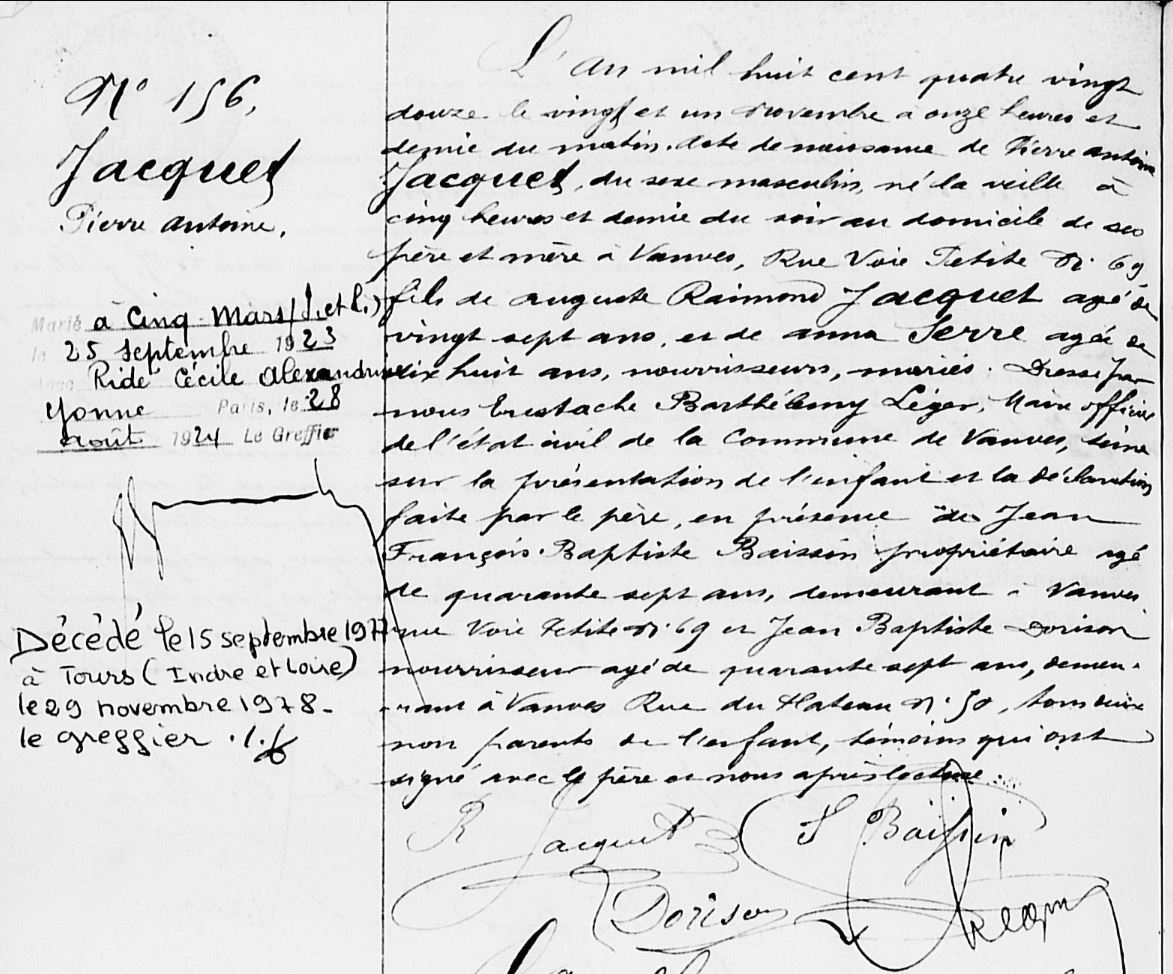 N° 156.
Jacquet
Pierre Antoine.
Marié à Cinq-Mars (I. et L.)
le 25 septembre 1923
Ride Cécile Alexandrine
Yonne Paris, le 28
août 1924 Le Greffier
Décédé le 15 septembre 1977
à Tours (Indre et Loire)
le 29 novembre 1978.
le greffier
L'An mil huit cent quatre vingt
douze le vingt et un Novembre à onze heures et
demie du matin. Acte de naissance de Pierre Antoine
Jacquet, du sexe masculin, né la veille à
cinq heures et demie du soir au domicile de ses
père et mère à Vanves, Rue Voie Petite N° 69
fils de Auguste Raimond Jacquet agé de
vingt sept ans, et de Anna Serre agée de
dix huit ans, nourrisseurs, mariés. Dressé par
nous Eustache Barthélemy Leger, Maire officier
de l'état civil de la Commune de Vanves, Seine
sur la présentation de l'enfant et la déclaration
faite par le père, en présence de Jean
François-Baptiste Baissin propriétaire agé
de quarante sept ans, demeurant à Vanves
rue Voie Petite N° 69 et Jean Baptiste Dorison
nourrisseur agé de quarante sept ans, demeu-
rant à Vanves Rue du Plateau N° 50, tous deux
non parents de l'enfant, témoins qui ont
signé avec le père et nous après lecture.
R Jacquet J Baissin
Dorison